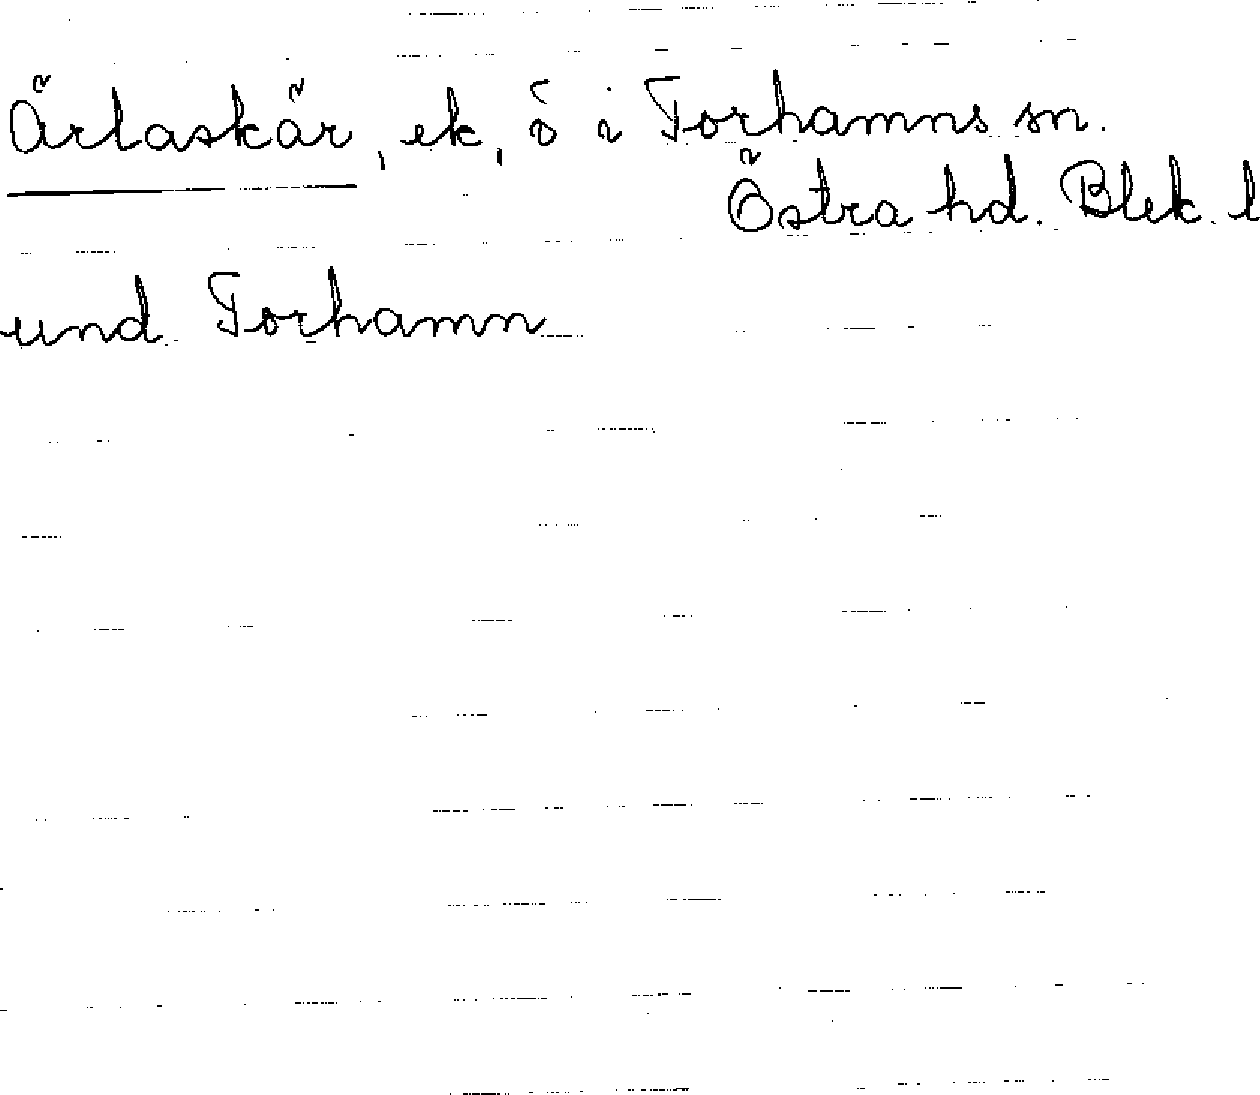 Ärlaskär, ek, ö i Torhamns sn.
Östra hd. Blek. l
und. Torhamn